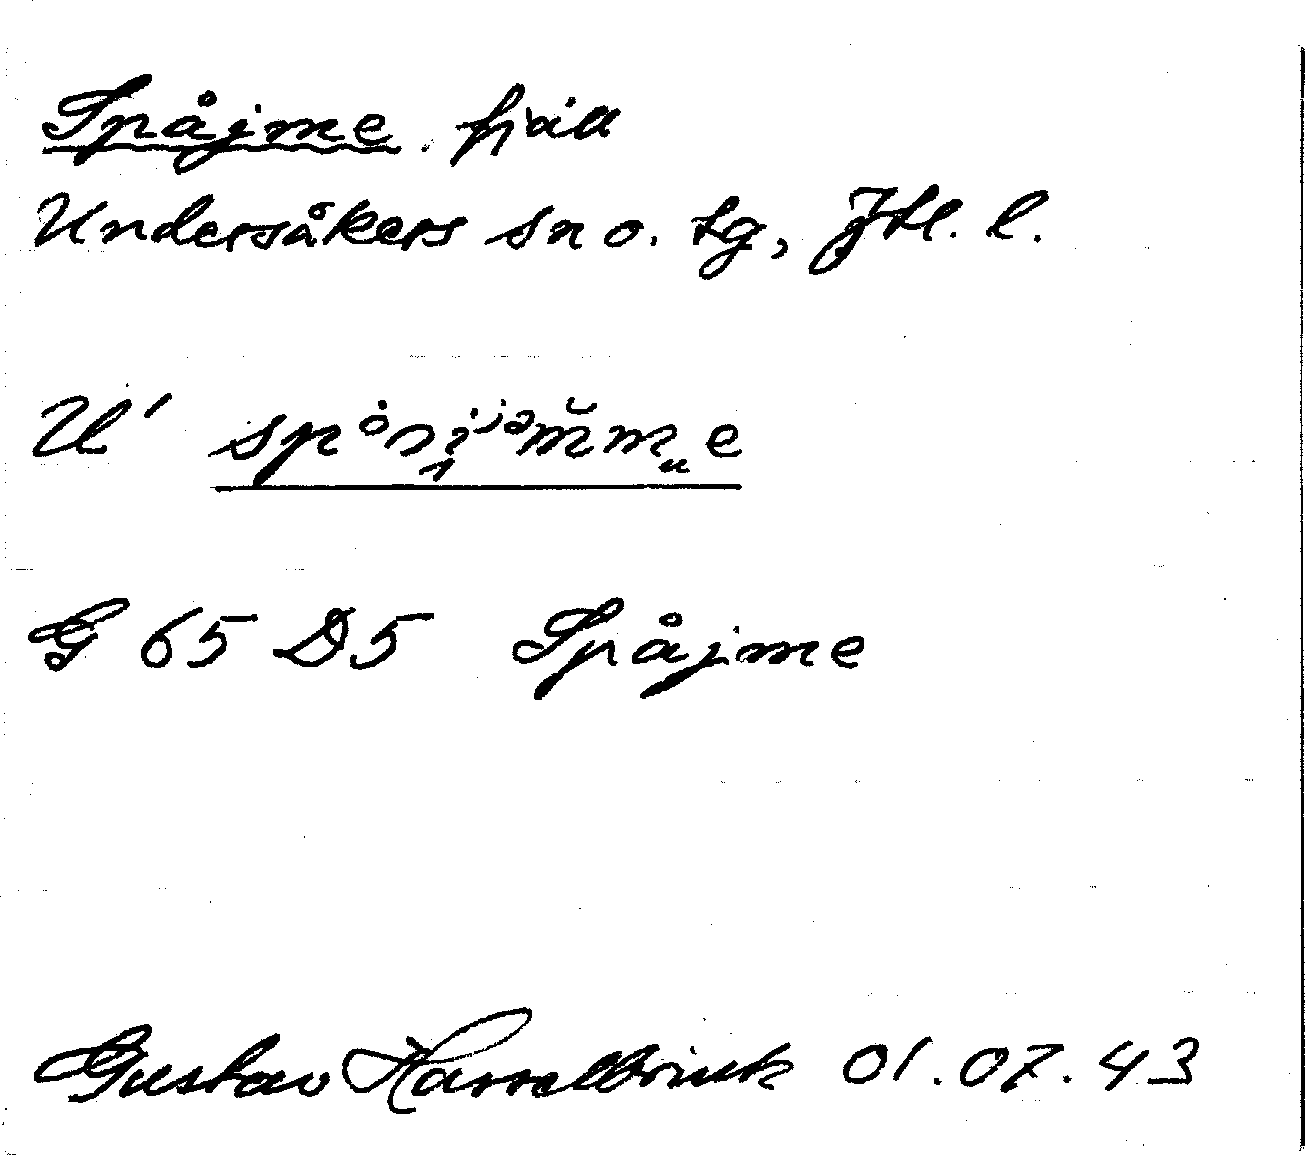 Spåjme. fjäll
Undersåkers sn o. tg, Jtl. l.
U'
G 65 D5 Spåjme
Gustav Hasselbrink 01.07.43